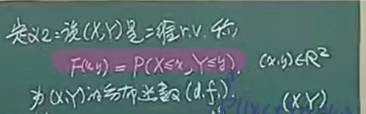 定义2:设(X,Y)是二维r.v. 称
F(x,y) = P(X≤x, Y≤y), (x,y)∈R²
为(X,Y)的分布函数(d.f.)
(X,Y)